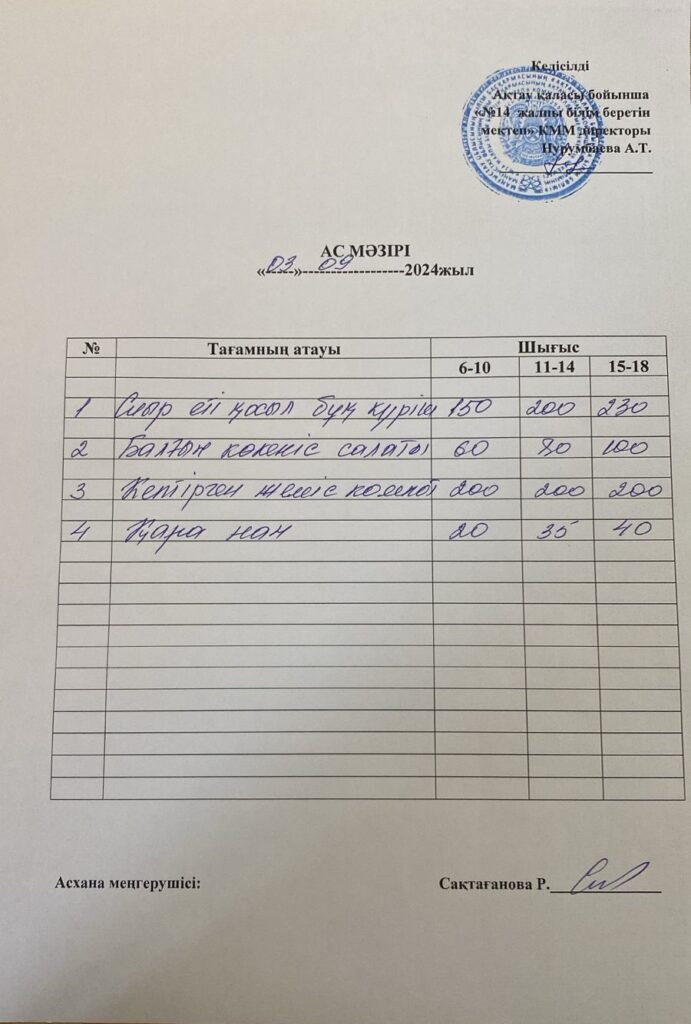 Келісілді
Ақтау қаласы бойынша
«№14 жалпы білім беретін
мектеп» КММ директоры
Нурумбаева А.Т.
АС МӘЗІРІ
«--03--»---09---------------2024жыл
№ Тағамның атауы Шығыс
6-10 11-14 15-18
1 Сиыр еті қосып бұқ күріш 150 200 230
2 Балғын көкөніс салаты 60 80 100
3 Кептірген жеміс компот 200 200 200
4 Қара нан 20 35 40
Асхана меңгерушісі: Сақтағанова Р.